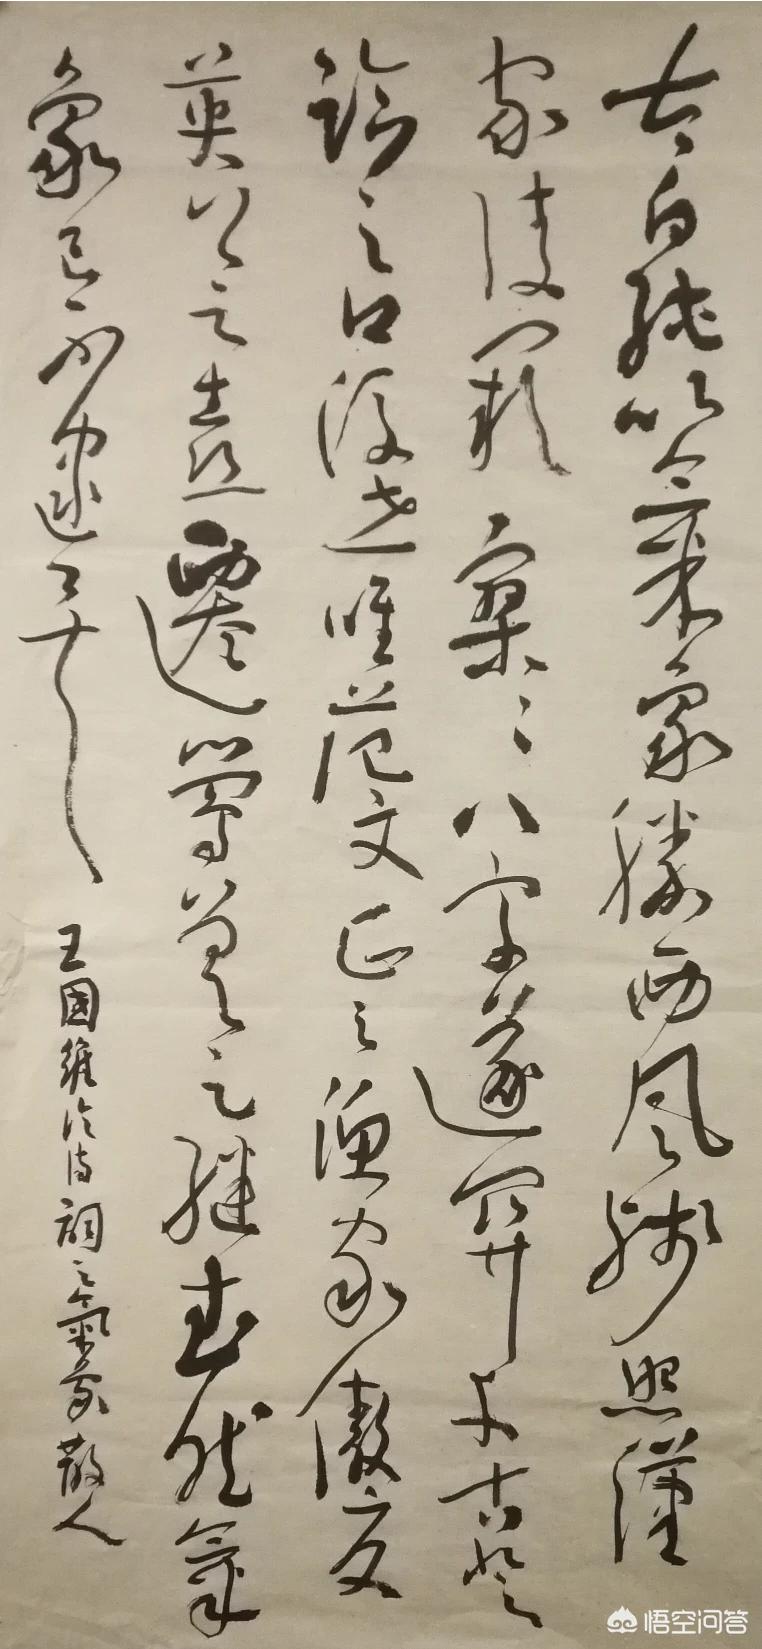 太白纯以氣象勝西风残照漢
家陵闕寥々八字遂関千古登
臨之口後世唯范文正之渔家傲夏
英公之喜迁鶯差足继武然氣
象已不逮矣
王國維論詩詞之氣象 散人
悟空问答